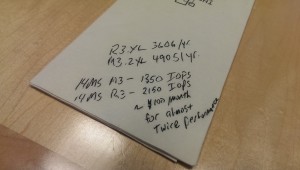 R3.4XL 3606/yr
M3.2XL 4905/yr.
14MS M3 - 1350 IOPS
14MS R3 - 2150 IOPS
~ /month
for almost
Twice performance